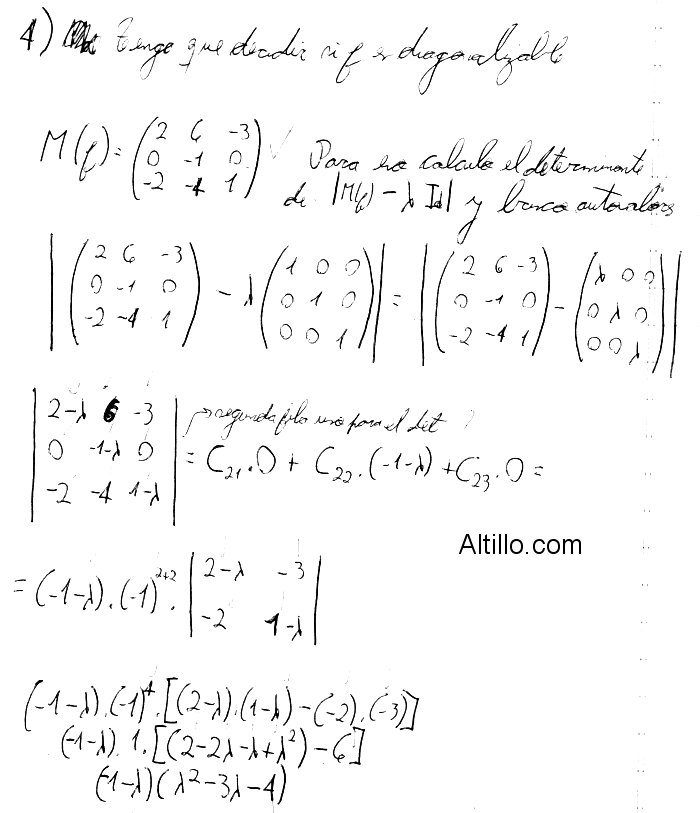 4) Tengo que decidir si f es diagonalizable
M(f) = (2 6 -3; 0 -1 0; -2 -4 1) ✓ Para eso calculo el determinante
de |M(f) - λ Id| y busco autovalores
|(2 6 -3; 0 -1 0; -2 -4 1) - λ (1 0 0; 0 1 0; 0 0 1)| = |(2 6 -3; 0 -1 0; -2 -4 1) - (λ 0 0; 0 λ 0; 0 0 λ)|
→ segunda fila uso para el det
|2-λ 6 -3; 0 -1-λ 0; -2 -4 1-λ| = C₂₁.0 + C₂₂.(-1-λ) + C₂₃.0 =
Altillo.com
= (-1-λ).(-1)²⁺².|2-λ -3; -2 1-λ|
(-1-λ).(-1)⁴.[(2-λ).(1-λ) - (-2).(-3)]
(-1-λ).1.[(2-2λ-λ+λ²) - 6]
(-1-λ)(λ²-3λ-4)